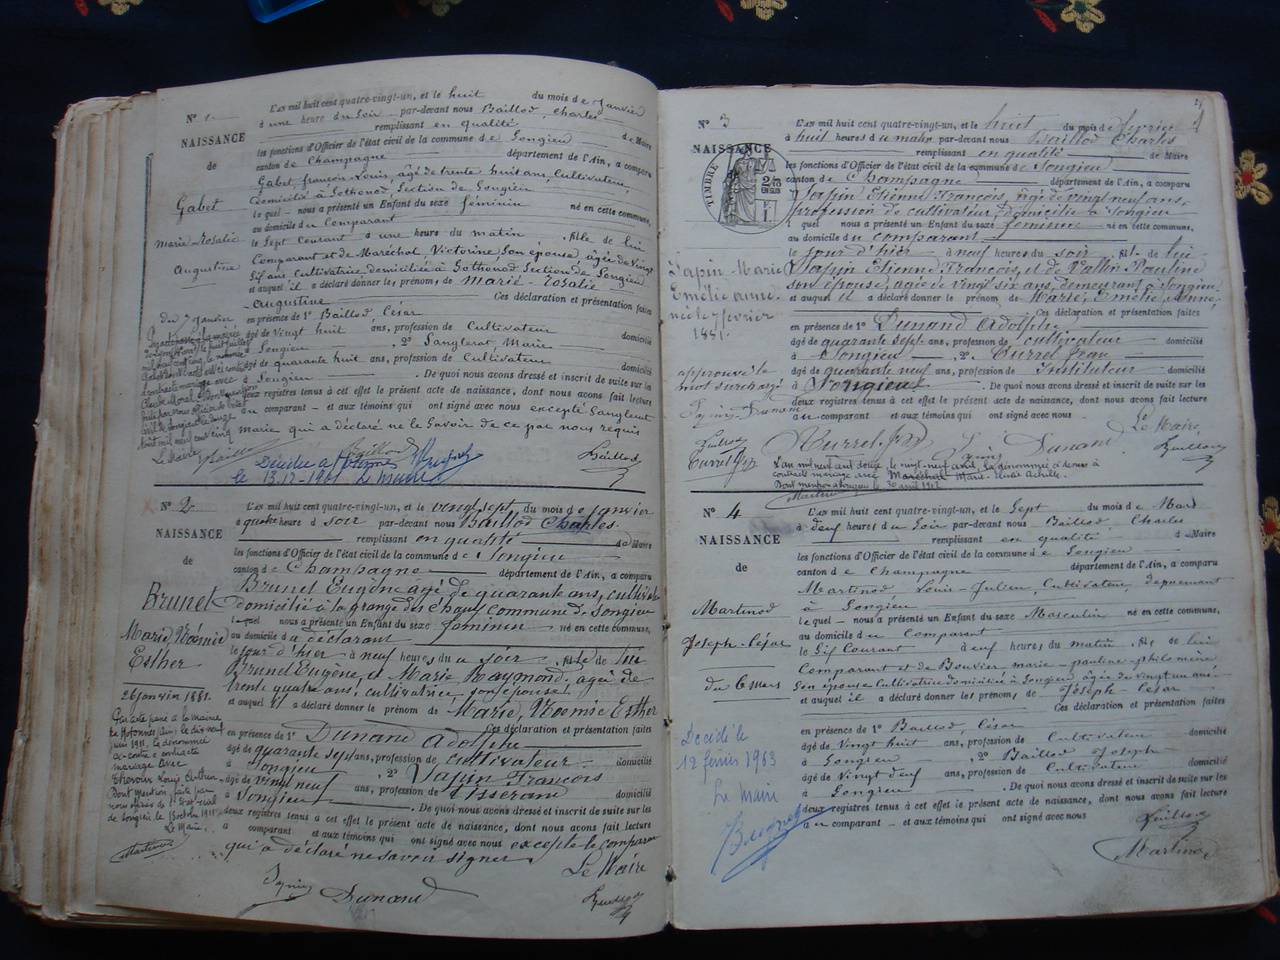 N° 1
NAISSANCE
de
Gabet
Marie-Rosalie
Augustine
du 7 janvier
L'AN mil huit cent quatre-vingt-un, et le huit du mois de Janvier
à une heure du Soir par-devant nous Baillod, Charles
remplissant en qualité de Maire
les fonctions d'Officier de l'état civil de la commune de Songieu
canton de Champagne département de l'Ain, a comparu
Gabet françois-Louis, âgé de trente huit ans, Cultivateur,
domicilié à Sothonod, Section de Songieu
lequel nous a présenté un Enfant du sexe féminin né en cette commune,
au domicile du Comparant
le Sept Courant à une heure du matin, fille de lui
Comparant et de Maréchal Victorine, Son épouse, âgée de Vingt
Six ans Cultivatrice domiciliée à Sothonod Section de Songieu
et auquel il a déclaré donner les prénoms de Marie-Rosalie
Augustine Ces déclaration et présentation faites
en présence de 1° Baillod, César
âgé de Vingt huit ans, profession de Cultivateur domicilié
à Songieu, 2° Sanglerat, Michel
âgé de quarante huit ans, profession de Cultivateur domicilié
à Songieu. De quoi nous avons dressé et inscrit de suite sur les
deux registres tenus à cet effet le présent acte de naissance, dont nous avons fait lecture
au comparant et aux témoins qui ont signé avec nous excepté Sanglerat
qui a déclaré ne le Savoir de ce par nous requis
Le Maire
Baillod
Décédée à Hotonnes
le 13-12-1961 Le Maire
N° 2
NAISSANCE
de
BRUNET
Marie Noémie
Esther
26 janvier 1881.
Par acte passé à la mairie
de Hotonnes (Ain) le dix neuf
juin 1911, la dénommée
ci-contre a contracté
mariage avec
Louis
Dont mention faite par
nous
de Songieu le 13 octobre 1911
Le Maire,
Martinod
L'AN mil huit cent quatre-vingt-un, et le vingt sept du mois de janvier
à quatre heures du soir par-devant nous Baillod Charles.
remplissant en qualité de Maire
les fonctions d'Officier de l'état civil de la commune de Songieu
canton de Champagne département de l'Ain, a comparu
Brunet Eugène âgé de quarante ans, cultivateur
domicilié à la grange des chaux commune de Songieu
lequel nous a présenté un Enfant du sexe féminin né en cette commune,
au domicile du déclarant
le jour d'hier à neuf heures du soir, fille de lui
Brunet Eugène, et Marie Raymond, âgée de
trente quatre ans, cultivatrice, son épouse
et auquel il a déclaré donner le prénom de Marie, Noémie Esther
Ces déclaration et présentation faites
en présence de 1° Dunand Adolphe
âgé de quarante sept ans, profession de cultivateur domicilié
à Songieu, 2° Sapin François
âgé de vingt neuf ans, profession de Tisserand domicilié
à Songieu. De quoi nous avons dressé et inscrit de suite sur les
deux registres tenus à cet effet le présent acte de naissance, dont nous avons fait lecture
à comparant et aux témoins qui ont signé avec nous excepté le comparant
qui a déclaré ne savoir signer. Le Maire
Sapin Dunand Baillod
N° 3
NAISSANCE
TIMBRE
Sapin Marie
Emélie Anne.
née le 7 février
1881.
approuvé le
mot surchargé
Sapin Dunand
Baillod
Turrel Jean
L'AN mil huit cent quatre-vingt-un, et le huit du mois de février
à huit heures du matin par-devant nous Baillod Charles
remplissant en qualité de Maire
les fonctions d'Officier de l'état civil de la commune de Songieu
canton de Champagne département de l'Ain, a comparu
Sapin Etienne François, âgé de vingt neuf ans,
profession de cultivateur, domicilié à Songieu
lequel nous a présenté un Enfant du sexe féminin né en cette commune,
au domicile du comparant
le jour d'hier à neuf heures du soir, fille de lui
Sapin Etienne François, et de Vallin Pauline
son épouse, agée de vingt six ans, demeurant à Songieu
et auquel il a déclaré donner le prénom de Marie, Emélie Anne,
Ces déclaration et présentation faites
en présence de 1° Dunand Adolphe
âgé de quarante sept ans, profession de cultivateur domicilié
à Songieu, 2° Turrel Jean
âgé de quarante neuf ans, profession de Instituteur domicilié
à Songieu. De quoi nous avons dressé et inscrit de suite sur les
deux registres tenus à cet effet le présent acte de naissance, dont nous avons fait lecture
au comparant et aux témoins qui ont signé avec nous.
Le Maire,
Turrel Sapin Dunand Baillod
L'an mil neuf cent douze, le vingt-neuf avril, la dénommée ci-dessus a
contracté mariage avec Maréchal Marie-
Dont mention à Songieu le 30 avril 1912
Martinod
N° 4
NAISSANCE
de
Martinod
Joseph-César
du 6 Mars
Décédé le
12 février 1963
Le Maire
L'AN mil huit cent quatre-vingt-un, et le Sept du mois de Mars
à deux heures du Soir par-devant nous Baillod, Charles
remplissant en qualité de Maire
les fonctions d'Officier de l'état civil de la commune de Songieu
canton de Champagne département de l'Ain, a comparu
Martinod Louis-Julien, Cultivateur, demeurant
à Songieu
lequel nous a présenté un Enfant du sexe Masculin né en cette commune,
au domicile du Comparant
le Six Courant à neuf heures du matin, fils de lui
Comparant et de Bouvier Marie-pauline-philomène
Son épouse Cultivatrice domiciliée à Songieu âgée de vingt un ans
et auquel il a déclaré donner les prénoms de Joseph-César
Ces déclaration et présentation faites
en présence de 1° Baillod, César
âgé de Vingt huit ans, profession de Cultivateur domicilié
à Songieu, 2° Baillod Joseph
âgé de Vingt neuf ans, profession de Cultivateur domicilié
à Songieu. De quoi nous avons dressé et inscrit de suite sur les
deux registres tenus à cet effet le présent acte de naissance, dont nous avons fait lecture
au comparant et aux témoins qui ont signé avec nous
Baillod
Martinod